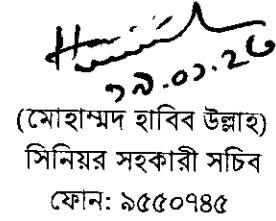 (মোহাম্মদ হাবিব উল্লাহ)
সিনিয়র সহকারী সচিব
ফোন: ৯৫৫০৭৪৫